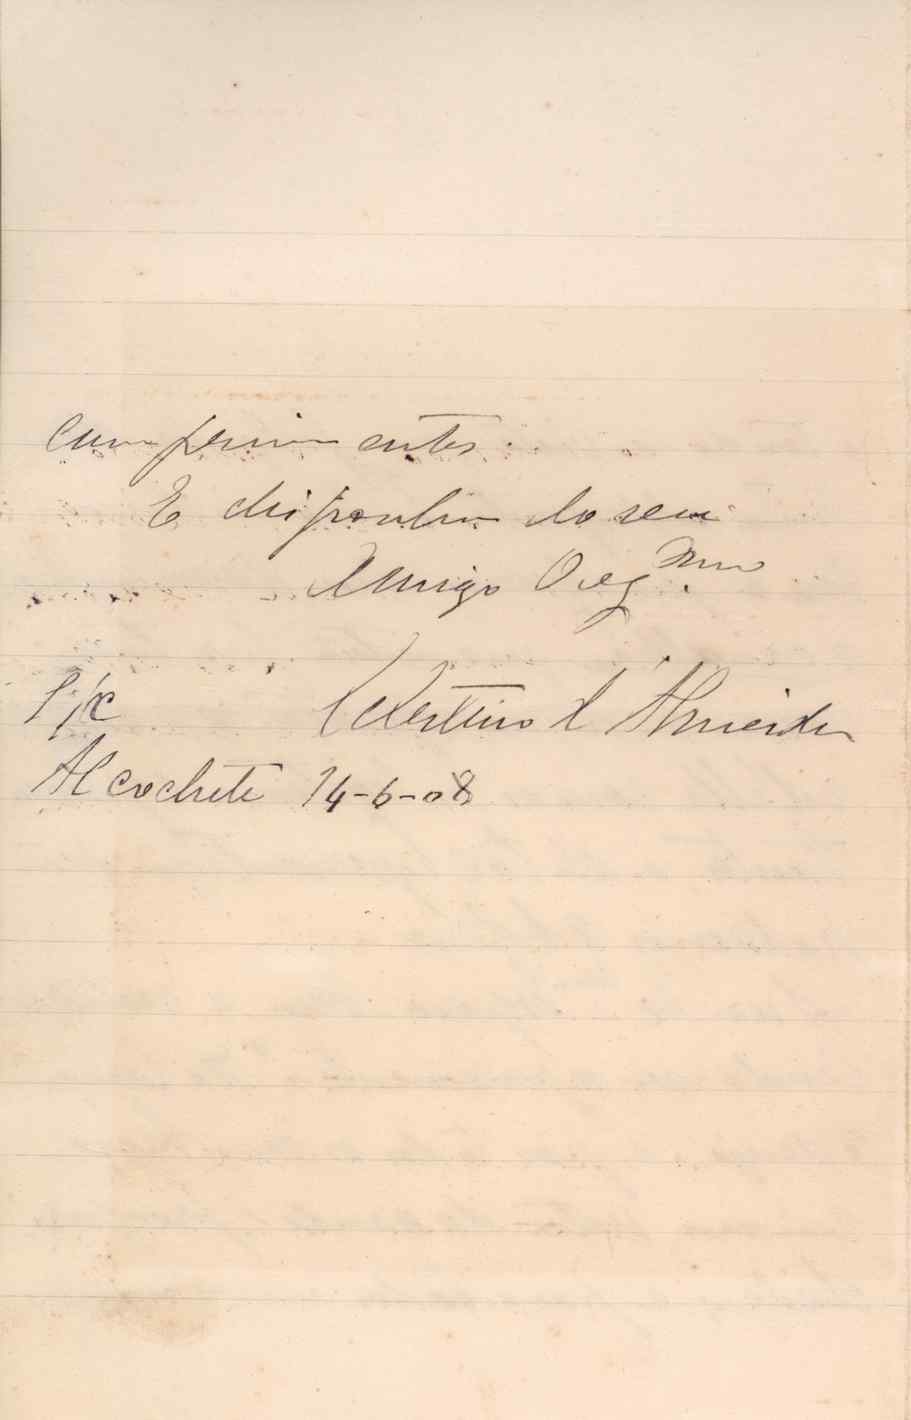 cumprimentos.
E disponha do seu
Amigo Obg.mo
S/c Celestino d'Almeida
Alcochete 14-6-08